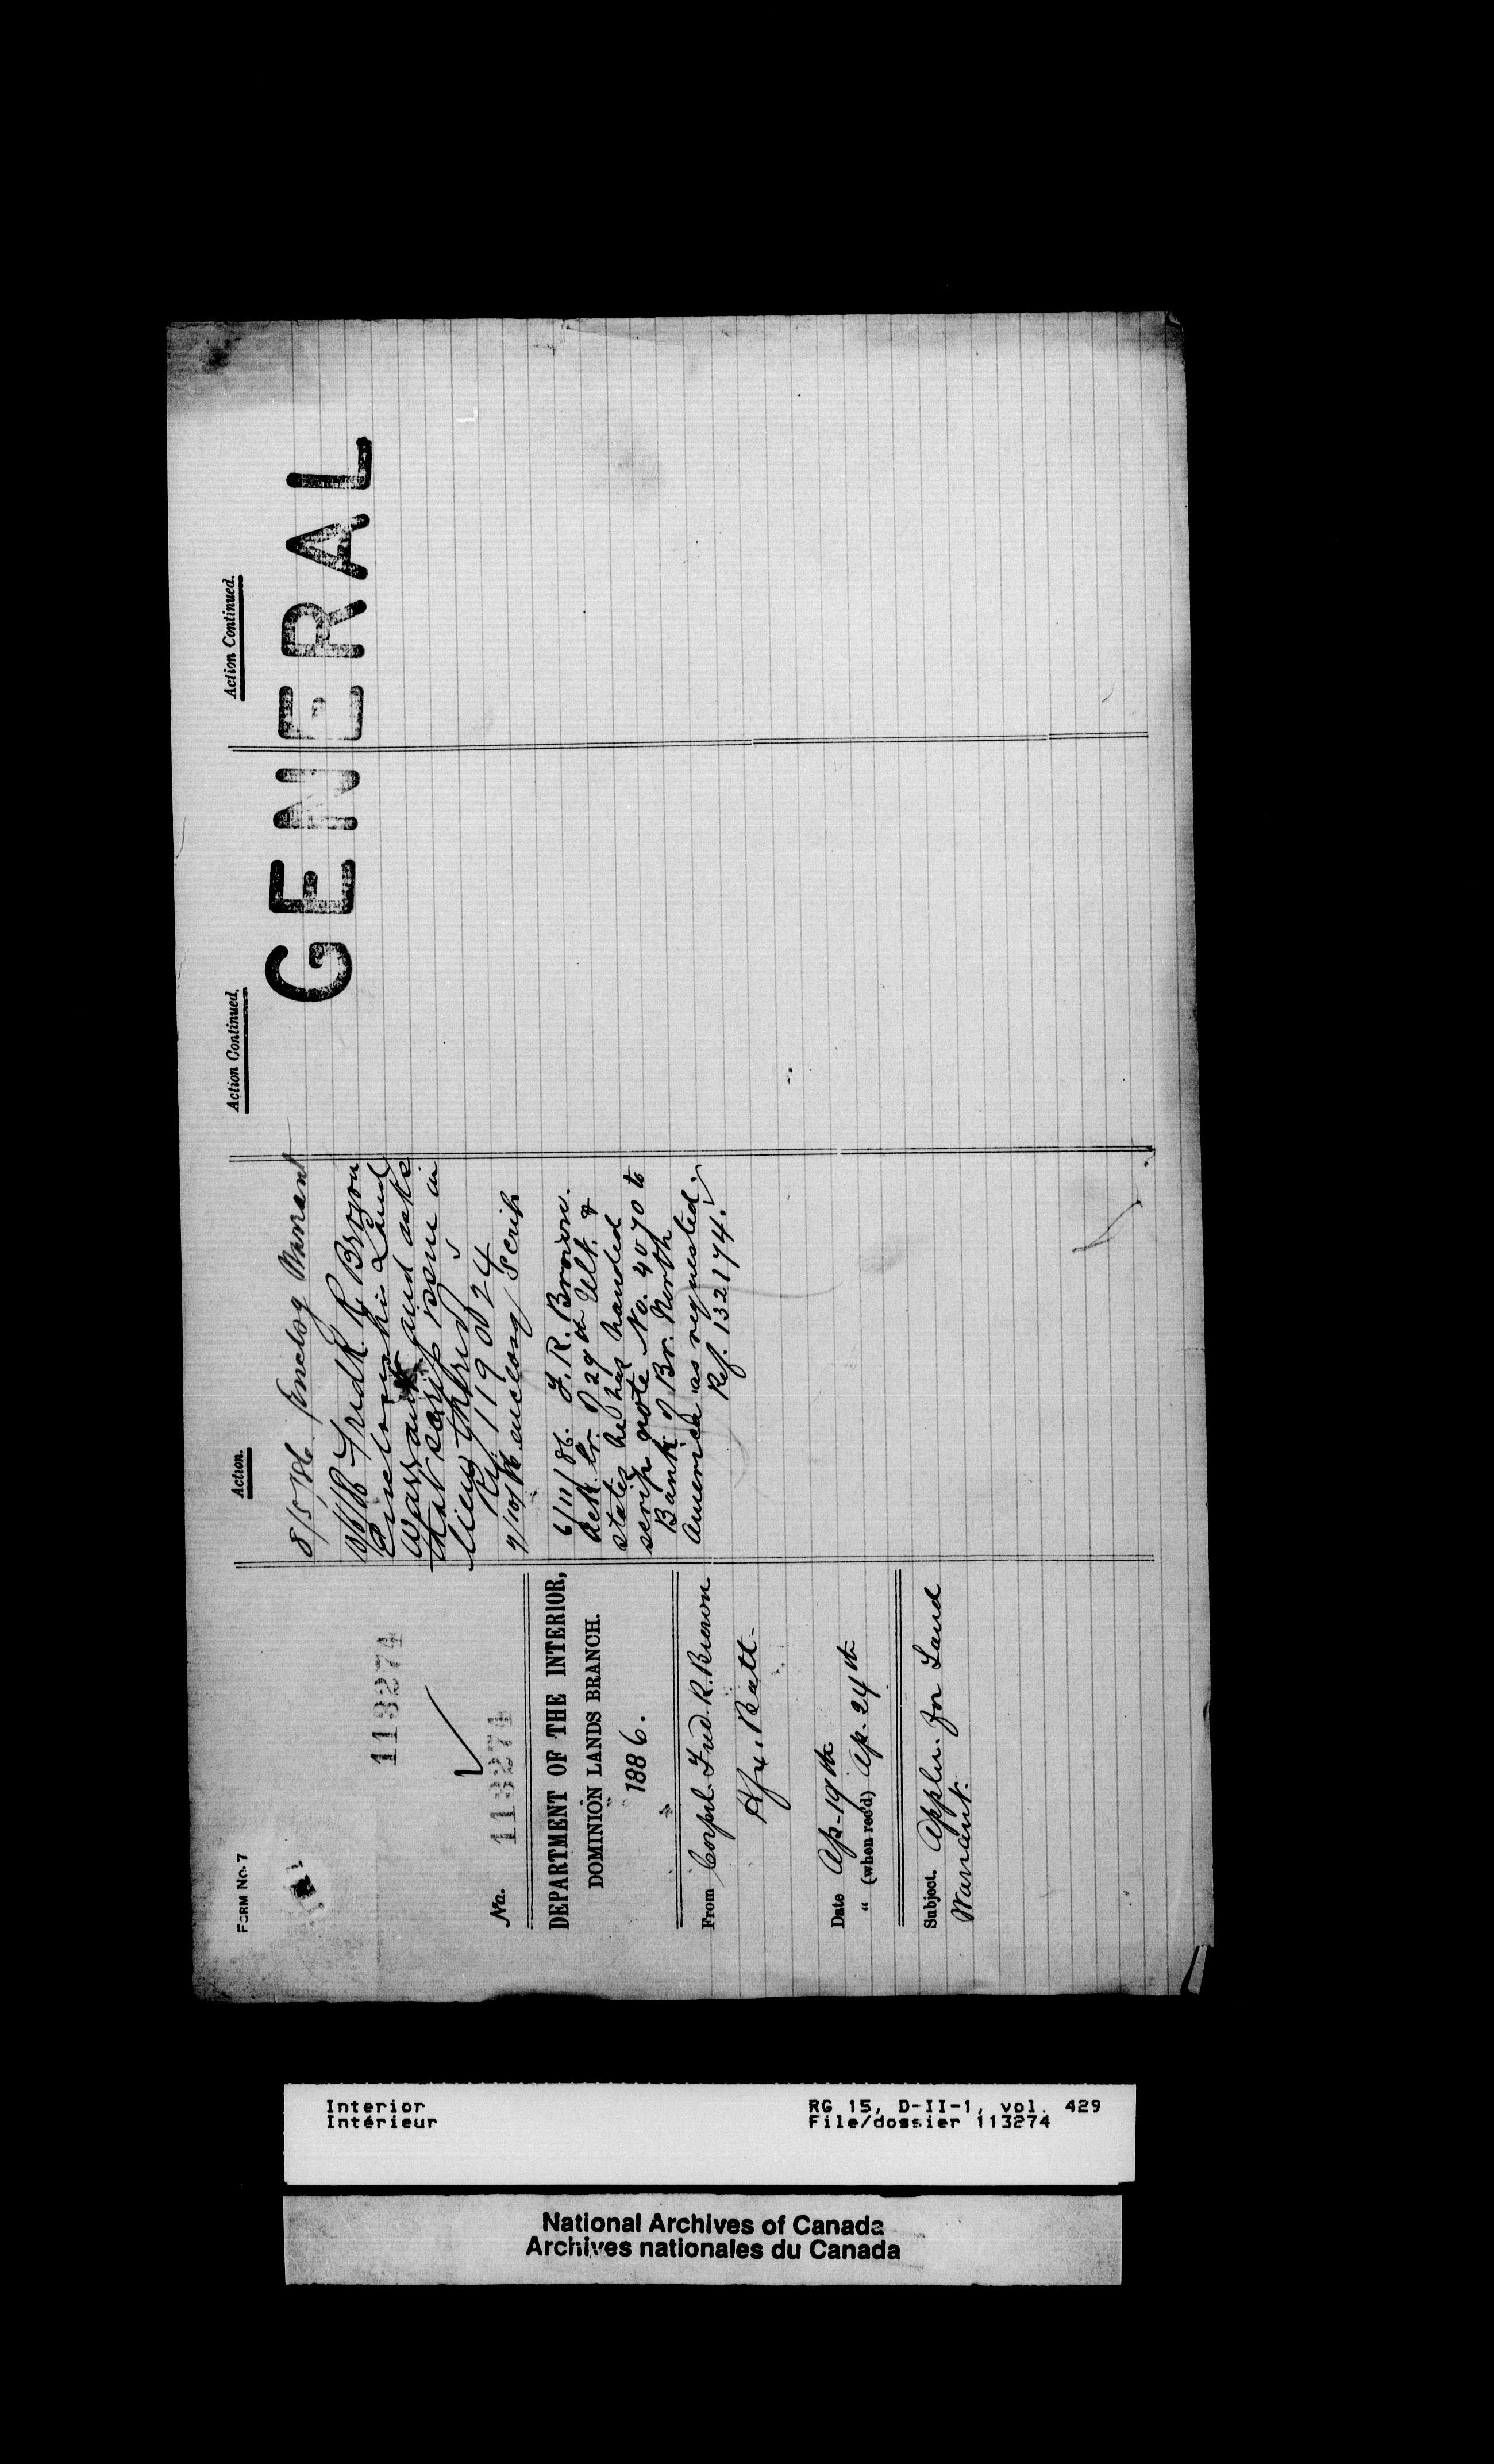 FORM No. 7
113274
No. 113274
DEPARTMENT OF THE INTERIOR,
DOMINION LANDS BRANCH.
1886.
From Corpl. Fred. R. Brown
Hfx. Batt.
Date Ap. 19th
" (when rec'd) Ap. 24th
Subject. Appln. for Land
Warrant.
Action.
8/5/86 enclog Warrant
Fredk R. Brown
Encloses his Land
Warrant and asks
that scrip issue in
lieu thereof
Ref. 119024
7/10/86 enclosg Scrip
6/11/86. F. R. Brown.
Ack. lr. of 29th Ult. &
states he has handed
scrip note No. 4070 to
Bank of Br. North
America as requested.
Ref. 132174.
Action Continued.
Action Continued.
GENERAL
Interior
Intérieur
RG 15, D-II-1, vol. 429
File/dossier 113274
National Archives of Canada
Archives nationales du Canada